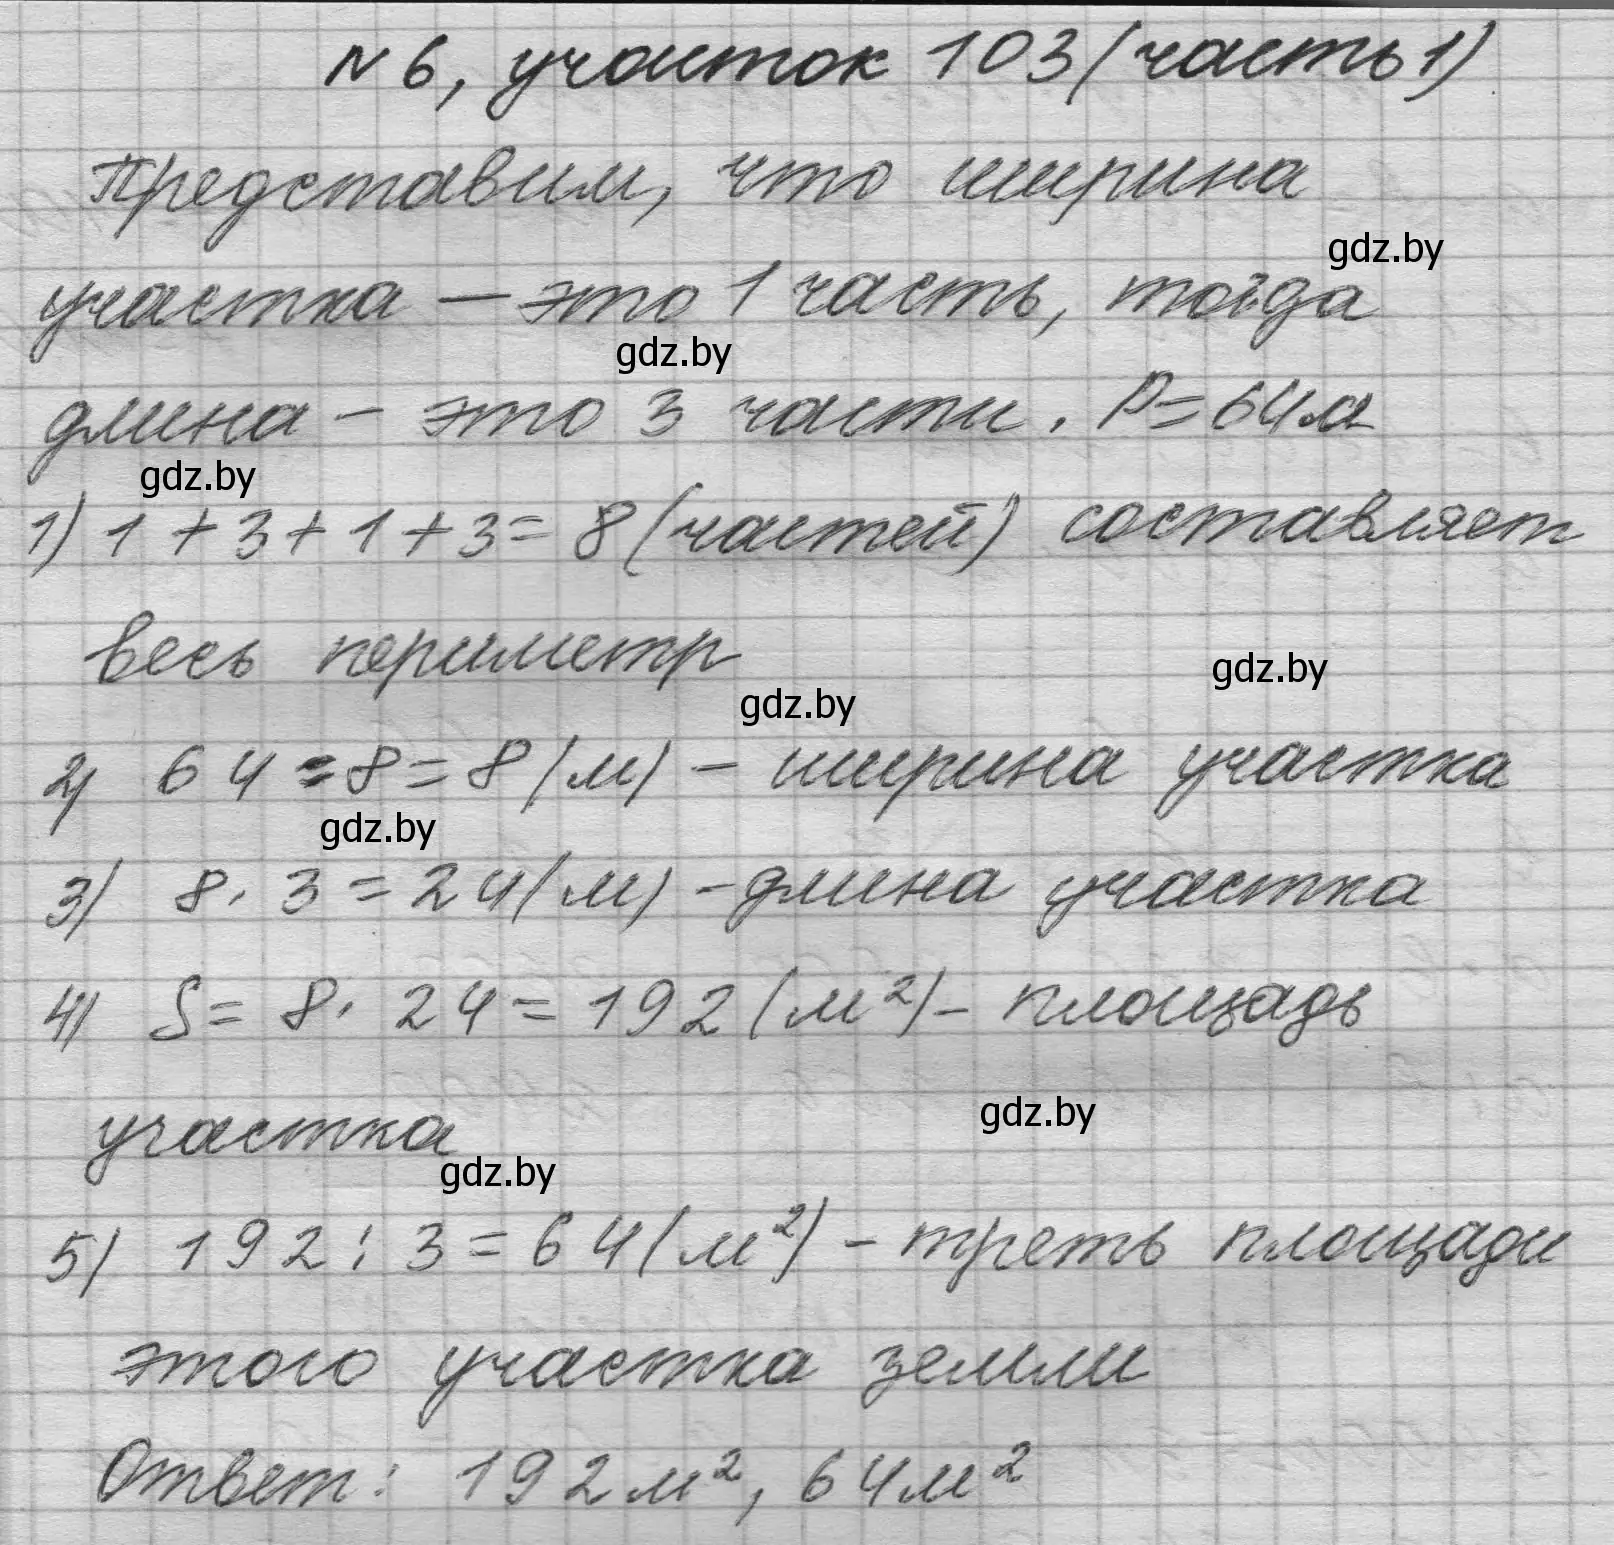 №6, участок 103 (часть 1)
Представим, что ширина
gdz.by
участка — это 1 часть, тогда
gdz.by
длина - это 3 части. P=64м
gdz.by
1) 1+3+1+3=8 (частей) составляет
весь периметр
gdz.by
gdz.by
2) 64:8=8 (м) - ширина участка
gdz.by
3) 8·3=24 (м) - длина участка
4) S=8·24=192 (м²) - площадь
gdz.by
участка
gdz.by
5) 192:3=64 (м²) - треть площади
этого участка земли
Ответ: 192 м², 64 м²